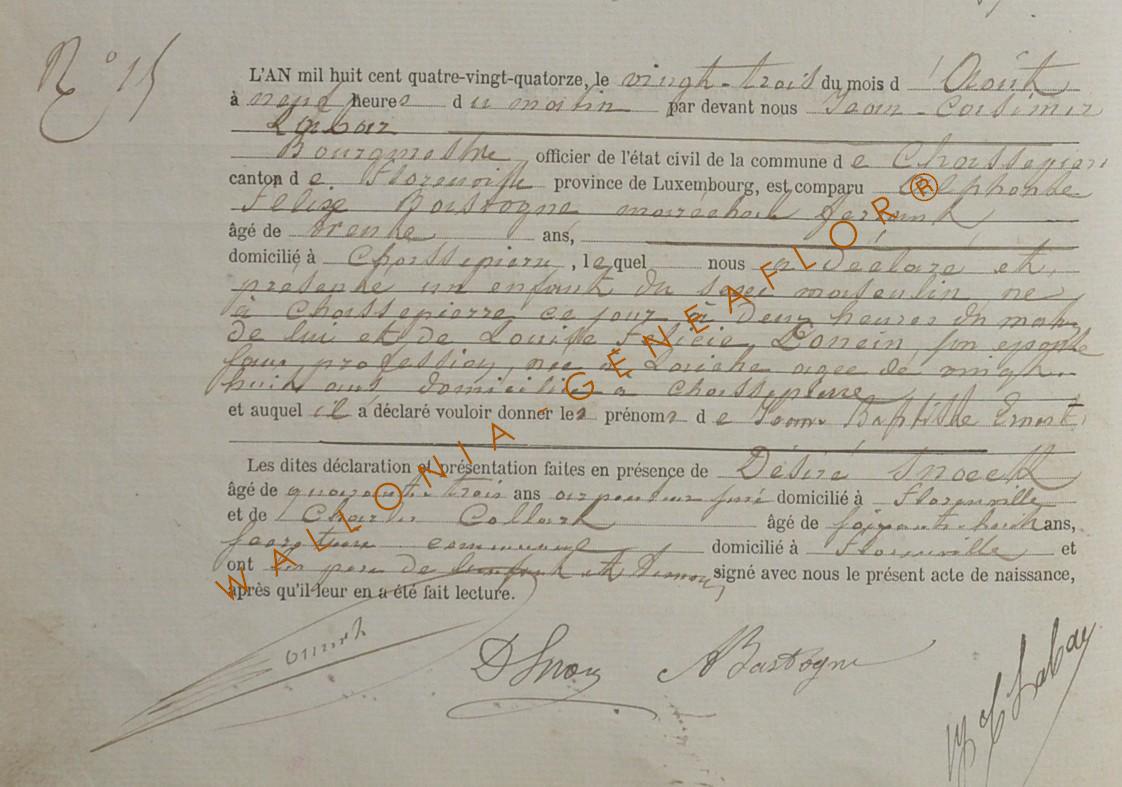 N° 15
L'AN mil huit cent quatre-vingt-quatorze, le vingt-trois du mois d'Août
à neuf heures du matin par devant nous Jean-Casimir
Labaÿ
Bourgmestre officier de l'état civil de la commune de Chassepierre
canton de Florenville province de Luxembourg, est comparu Alphonse
Félix Bastogne maréchal ferrant
âgé de trente ans,
domicilié à Chassepierre, lequel nous a déclaré et
présenté un enfant du sexe masculin né
à Chassepierre ce jour à deux heures du matin
de lui et de Louise Félicie son épouse
sans profession, née à âgée de vingt-
huit ans domiciliée à Chassepierre
et auquel il a déclaré vouloir donner les prénoms de Jean Baptiste Ernest
Les dites déclaration et présentation faites en présence de Désiré Snoeck
âgé de quarante-trois ans arpenteur juré domicilié à Florenville
et de Charles Collard âgé de soixante-huit ans,
secrétaire communal domicilié à Florenville et
ont le père de l'enfant et témoins signé avec nous le présent acte de naissance,
après qu'il leur en a été fait lecture.
D Snoeck ABastogne
JC Labaÿ
WALLONIA-GÉNÉAFLOR®